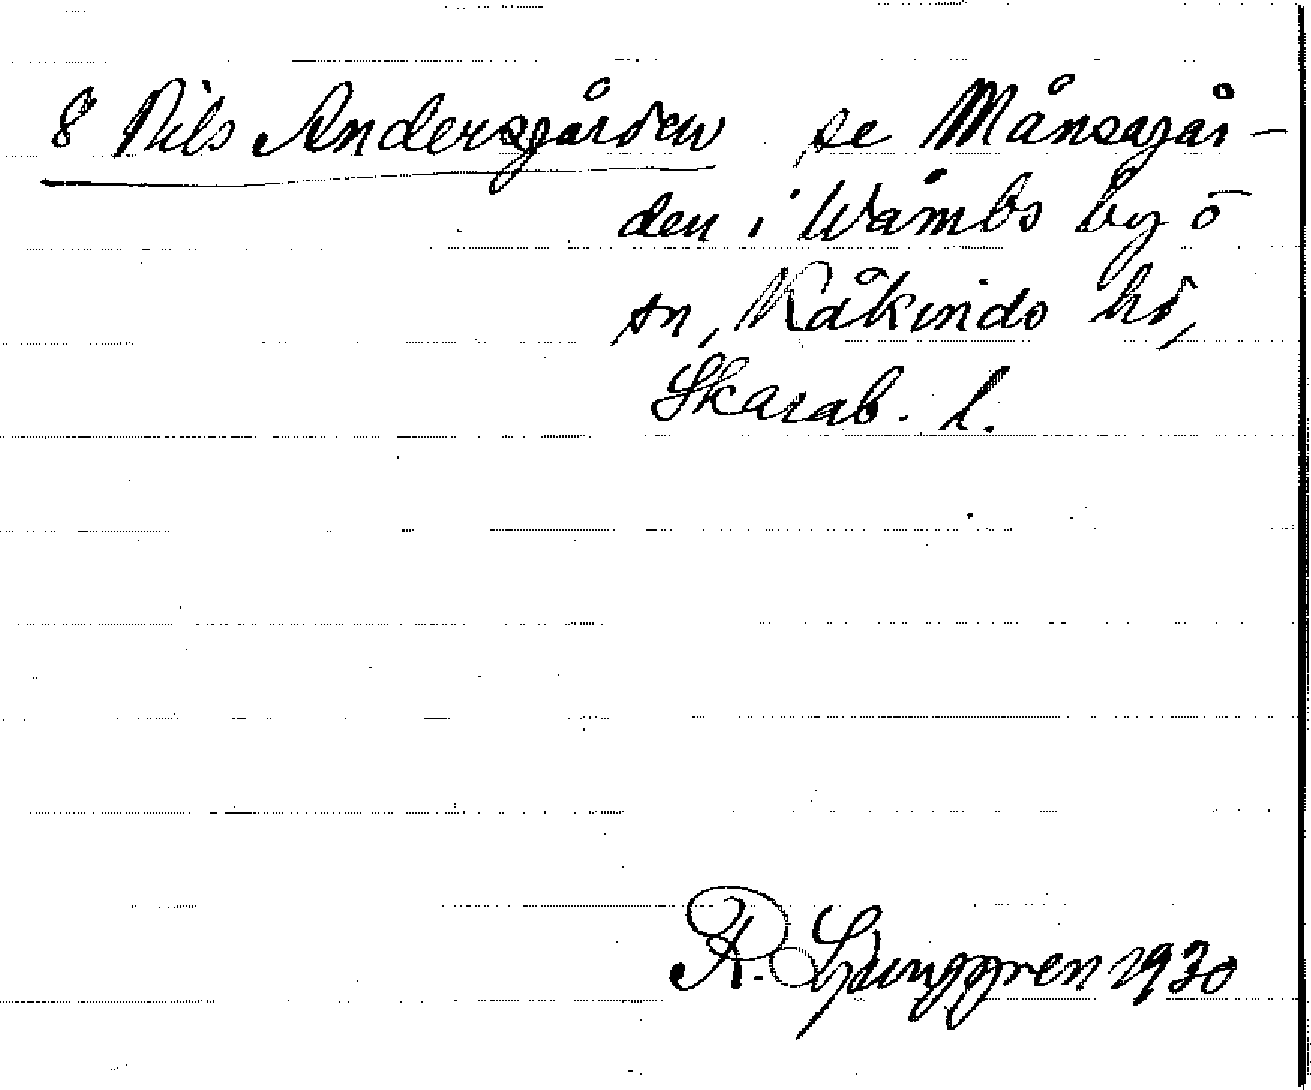 8 Nils Andersgården se Månsgår-
den i Wåmbs by o
sn, Kåkinds hd,
Skarab. l.
R. Ljunggren 1930